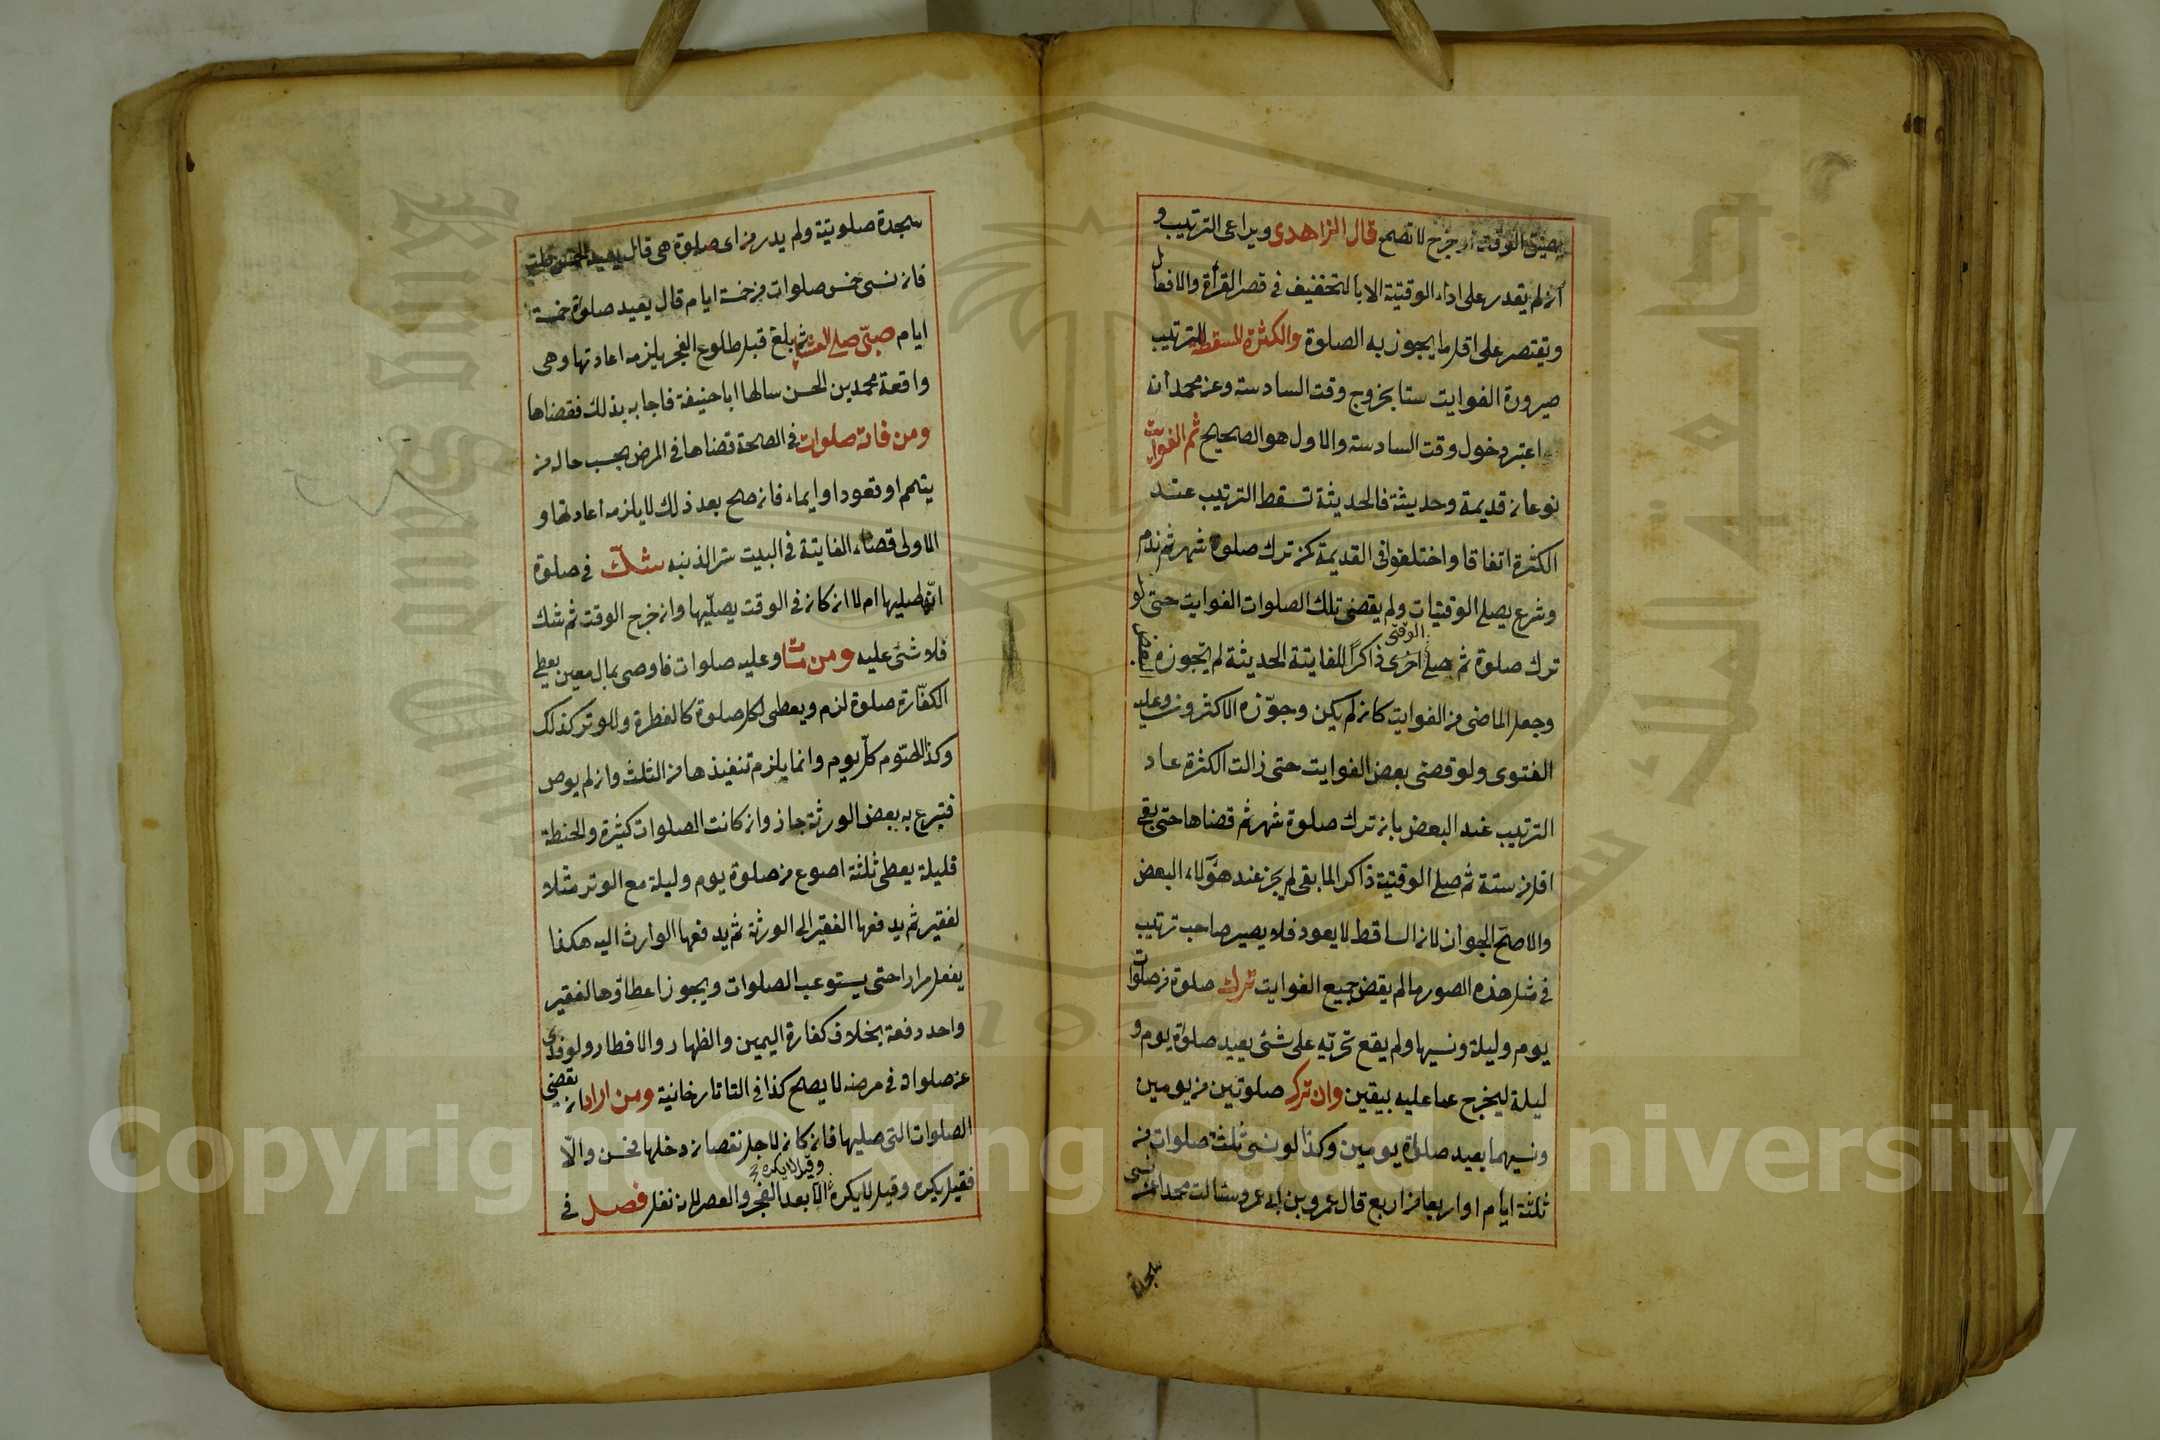 يضيق الوقت او خرج لا تصح قال الزاهدى ويراعى الترتيب و
ان لم يقدر على اداء الوقتية الا بالتخفيف فى قصر القرأة والافعال
ويقتصر على اقل ما يجوز به الصلوة والكثرة المسقطة للترتيب
صيرورة الفوايت ستا بخروج وقت السادسة وعن محمد انه
اعتبر دخول وقت السادسة والاول هو الصحيح ثم الفوايت
نوعان قديمة وحديثة فالحديثة تسقط الترتيب عند
الكثرة اتفاقا واختلفوا فى القديمة كمن ترك صلوة شهر ثم ندم
وشرع يصلى الوقتيات ولم يقض تلك الصلوات الفوايت حتى لو
ترك صلوة ثم يصلى اخرى الوقتى ذاكرًا للفايتة الحديثة لم يجوزه
وجعل الماضى من الفوايت كان لم يكن وجوّزه الاكثرون وعليه
الفتوى ولو قضى بعض الفوايت حتى زالت الكثرة عاد
الترتيب عند البعض بان ترك صلوة شهر ثم قضاها حتى بقى
اقل من ستة ثم صلى الوقتية ذاكرا لما بقى لم يجز عند هؤلاء البعض
والاصحّ الجواز لان الساقط لا يعود فلا يصير صاحب ترتيب
فى مثل هذه الصور ما لم يقض جميع الفوايت ترك صلوة من صلوات
يوم وليلة ونسيها ولم يقع تحرّيه على شئ يعيد صلوة يوم و
ليلة ليخرج عما عليه بيقين وان ترك صلوتين من يومين
ونسيهما يعيد صلوة يومين وكذا لو نسى ثلثة صلوات من
ثلثة ايام او اربعا من اربع قال عمرو بن ابى عمرو سئالت محمدا عمن نسى
سجدة
سجدة صلوتية ولم يدر من اى صلوة هى قال يعيد الخمس قلت
فان نسى خمس صلوات من خمسة ايام قال يعيد صلوة خمسة
ايام صبىّ صلى العشا ثم بلغ قبل طلوع الفجر يلزمه اعادتها وهى
واقعة محمد بن الحسن سالها ابا حنيفة فاجابه بذلك فقضاها
ومن فاته صلوات فى الصحة قضاها فى المرض بحسب حاله من
تيمم او قعود او ايماء فان صح بعد ذلك لا يلزمه اعادتها و
الاولى قضاء الفايتة فى البيت سترا لذنبه شكّ فى صلوة
انّه صليها ام لا ان كان فى الوقت يصلّيها وان خرج الوقت ثم شك
فلا شئ عليه ومن مات وعليه صلوات فاوصى بمال معين يعطى
الكفّارة صلوة لزم ويعطى لكل صلوة كالفطرة وللوتر كذلك
وكذا لصوم كلّ يوم وانما يلزم تنفيذها من الثلث وان لم يوص
فتبرع به بعض الورثة جاز وان كانت الصلوات كثيرة والحنطة
قليلة يعطى ثلثة اصوع من صلوة يوم وليلة مع الوتر مثلا
لفقير ثم يدفعها الفقير الى الورثة ثم يدفعها الوارث اليه هكذا
يفعل مرارا حتى يستوعب الصلوات ويجوز اعطاؤها لفقير
واحد دفعة بخلاف كفارة اليمين والظهار والافطار ولو فدى
عن صلواته فى مرضه لا يصح كذا فى التاتارخانية ومن اراد ان يقضى
الصلوات التى صليها فان كان لاجل نقصان دخلها فحسن والّا
فقيل يكره وقيل لا يكره وقيل لا يكره الا بعد الفجر والعصر لانه نفل فصل فى